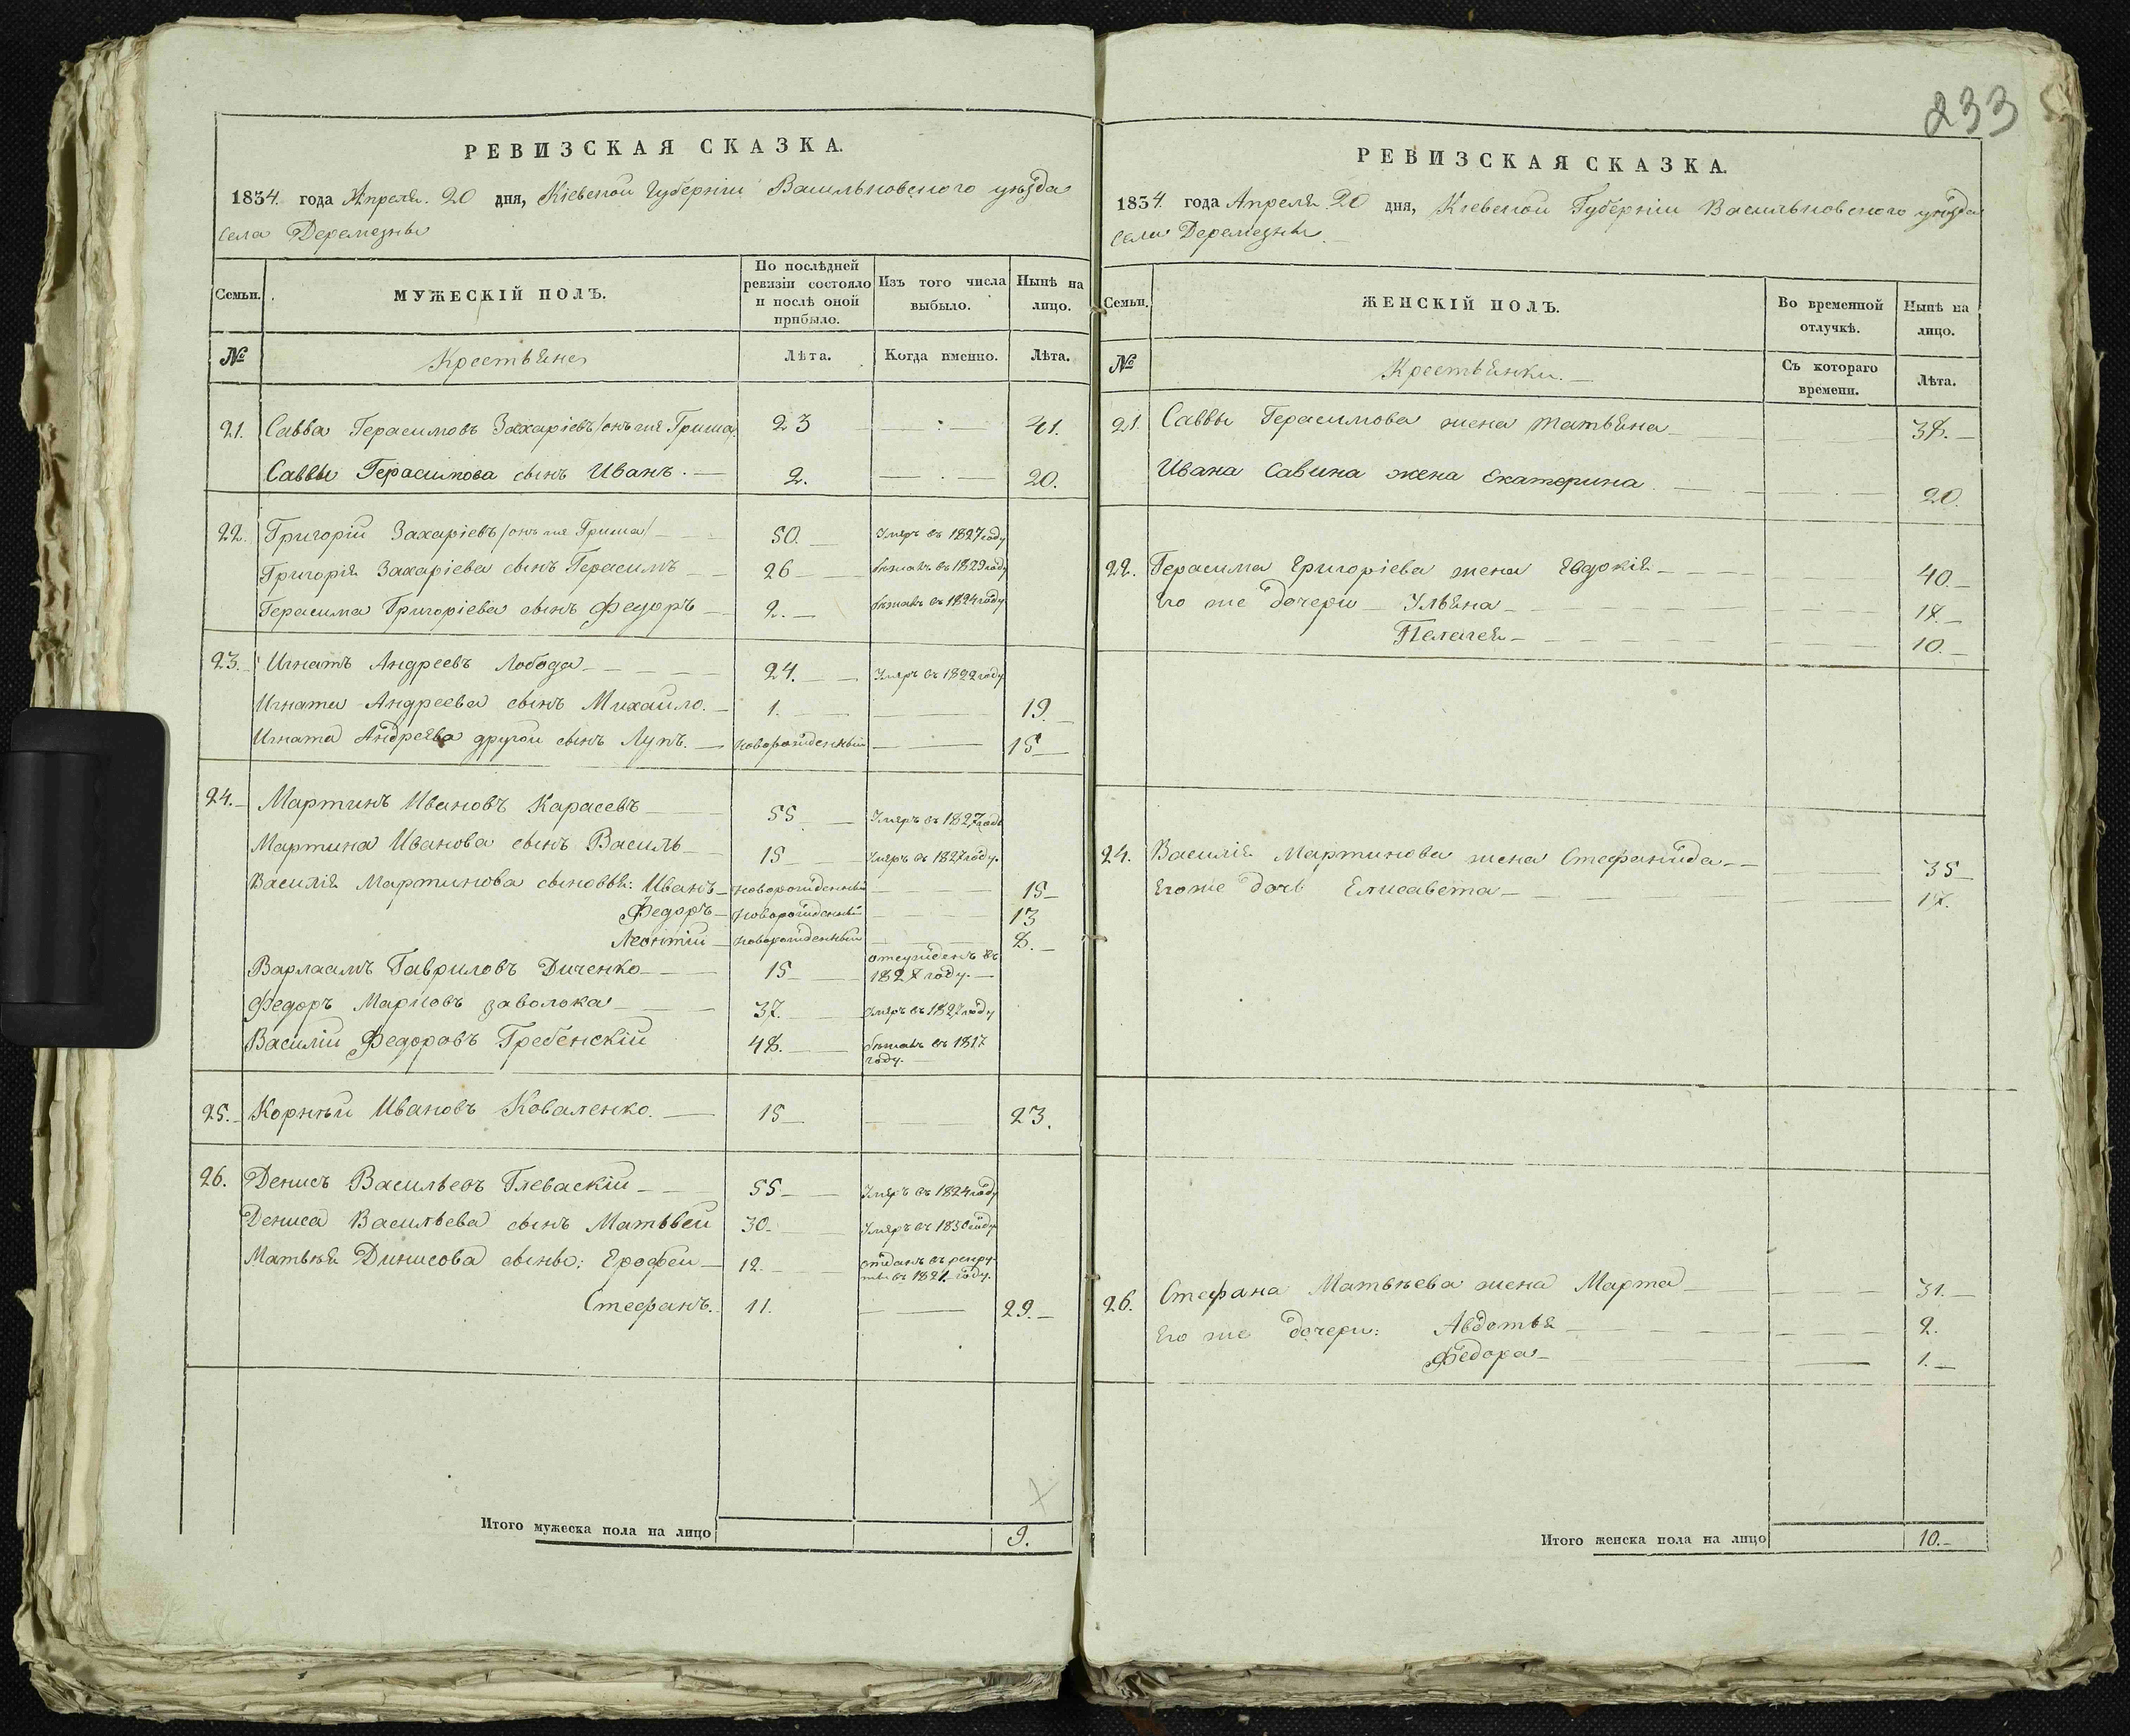 233
РЕВИЗСКАЯ СКАЗКА.
1834. года Апреля. 20 дня, Кіевской Губерніи Васильковского уѣзда
села Деремезны
Семьи.
МУЖЕСКІЙ ПОЛЪ.
По послѣдней ревизіи состояло и послѣ оной прибыло.
Изъ того числа выбыло.
Нынѣ на лицо.
№ Крестьяне Лѣта. Когда именно. Лѣта.
21. Савва Герасимовъ Захаріевъ /онъ же Гриша/ 23 41.
Саввы Герасимова сынъ Иванъ. 2. 20.
22. Григорій Захаріевъ /онъ же Гриша/ 50. Умеръ въ 1827 году
Григорія Захаріева сынъ Герасимъ 26 бѣжавъ въ 1829 году
Герасима Григоріева сынъ Федоръ 2. бѣжавъ въ 1824 году
23. Игнатъ Андреевъ Лобода 24. Умеръ въ 1822 году
Игната Андреева сынъ Михайло. 1. 19.
Игната Андреева другой сынъ Лупъ. новорожденный 15
24. Мартинъ Ивановъ Карасевъ 55 Умеръ въ 1827 году
Мартина Иванова сынъ Василь 15 Умеръ въ 1827 году.
Василія Мартинова сыновья: Иванъ новорожденный 15
Федоръ новорожденный 13
Леонтій новорожденный 8.
Варлаамъ Гавриловъ Диченко 15 отсужденъ въ
1828 году.
Федоръ Марковъ заволока 37. Умеръ въ 1827 году
Василій Федоровъ Гребенскій 48. бѣжавъ въ 1817
году.
25. Корнѣй Ивановъ Коваленко. 15 23.
26. Денисъ Васильевъ Глеваскій 55 Умеръ въ 1824 году
Дениса Васильева сынъ Матвей 30. Умеръ въ 1830 году
Матвѣя Динисова сыны: Ерофей 12. отданъ въ рекру-
ты въ 1821 году.
Стефанъ. 11. 29.
Итого мужеска пола на лицо 9.
РЕВИЗСКАЯ СКАЗКА.
1834. года Апреля 20 дня, Кіевской Губерніи Васильковского уѣзда
села Деремезны.
Семьи.
ЖЕНСКІЙ ПОЛЪ.
Во временной отлучкѣ.
Нынѣ на лицо.
№ Крестьянки. Съ котораго времени. Лѣта.
21. Саввы Герасимова жена Татьяна 38.
Ивана Савина жена Екатерина 20.
22. Герасима Григоріева жена Евдокія 40.
Его же дочери Ульяна 18.
Пелагея 10.
24. Василія Мартинова жена Стефанида 35
Его же дочь Елисавета 18.
26. Стефана Матвѣева жена Марта 31.
Его же дочери: Авдотья 2.
Федора 1.
Итого женска пола на лицо 10.